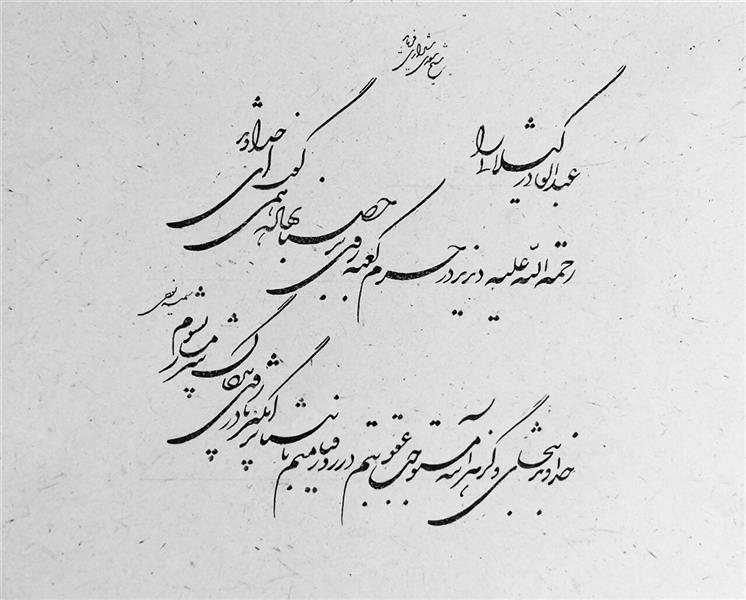 شیخ سعدی شیرازی فرماید
عبدالقادر گیلانی را
رحمة الله علیه دیدند در حرم کعبه روی بر حصبا نهاده همی گفت ای خداوند
خداوند ببخشای وگر هرآینه مستوجب عقوبتم در روز قیامتم نابینا برانگیز تا در روی نیکان شرمسار نشوم
سمیه